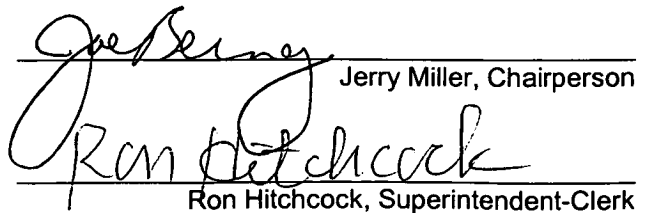 Joe Berney
Jerry Miller, Chairperson
Ron Hitchcock
Ron Hitchcock, Superintendent-Clerk